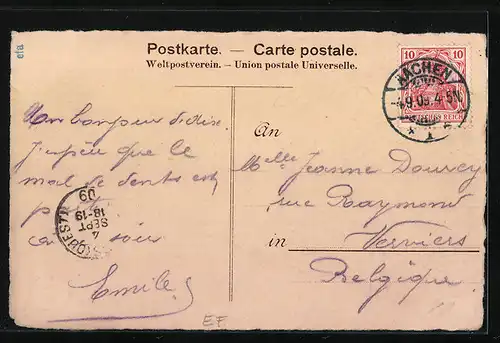 efa
Postkarte. — Carte postale.
Weltpostverein. — Union postale Universelle.
10 10
DEUTSCHES REICH
AACHEN
4.9.09. 4-5N
Un bonjour d'Aix.
J'espère que le
mal de dents est
à ce soir
Emile
09
18-19
SEPT
4
An
Melle Jeanne Dourcy
rue Raymond
in Verviers
Belgique
EF